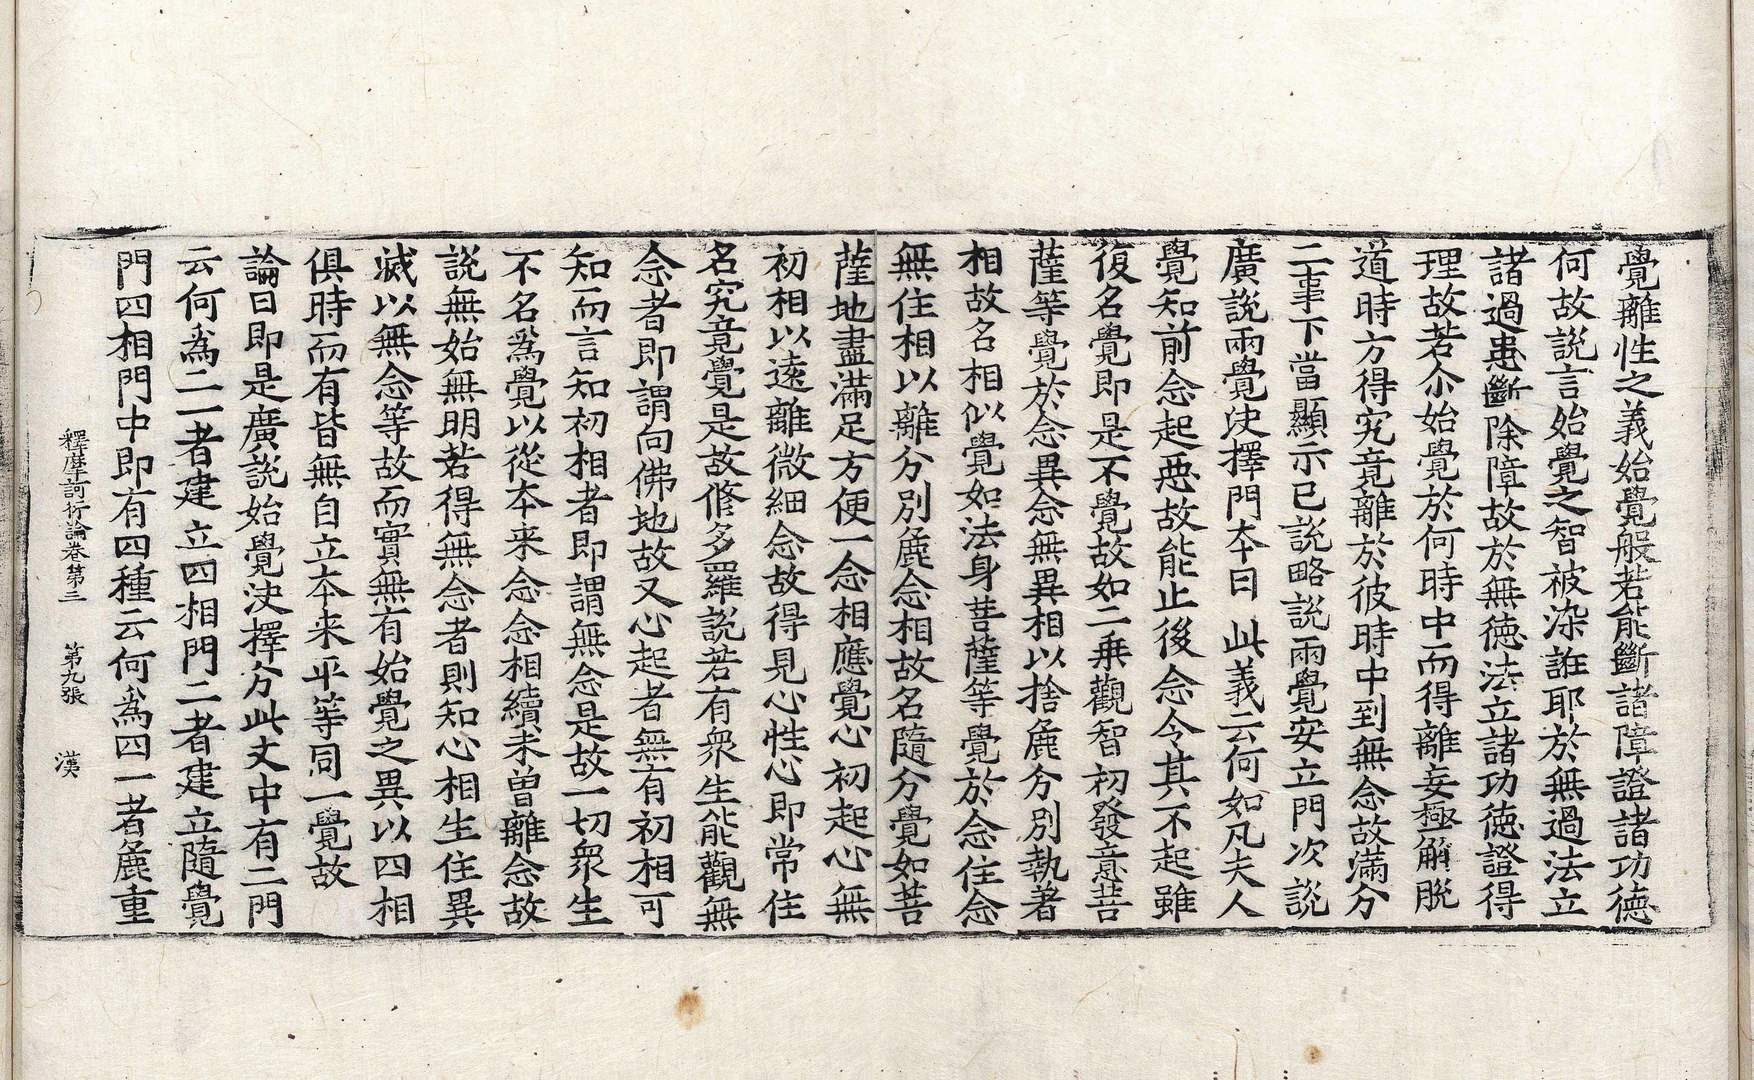 覺離性之義始覺般若能斷諸障證諸功徳
何故說言始覺之智被染誑耶於無過法立
諸過患斷除障故於無徳法立諸功徳證得
理故若尒始覺於何時中而得離妄極解脫
道時方得究竟離於彼時中到無念故滿分
二事下當顯示已說略說兩覺安立門次說
廣說兩覺決擇門本曰 此義云何如凡夫人
覺知前念起惡故能止後念令其不起雖
復名覺即是不覺故如二乗觀智初發意菩
薩等覺於念異念無異相以捨麁分別執著
相故名相似覺如法身菩薩等覺於念住念
無住相以離分別麁念相故名隨分覺如菩
薩地盡滿足方便一念相應覺心初起心無
初相以遠離微細念故得見心性心即常住
名究竟覺是故修多羅說若有衆生能觀無
念者即謂向佛地故又心起者無有初相可
知而言知初相者即謂無念是故一切衆生
不名爲覺以從本来念念相續未曽離念故
說無始無明若得無念者則知心相生住異
滅以無念等故而實無有始覺之異以四相
俱時而有皆無自立本来平等同一覺故
論曰即是廣說始覺決擇分此文中有二門
云何爲二一者建立四相門二者建立隨覺
門四相門中即有四種云何爲四一者麁重
釋摩訶衍論卷第三 第九張 漢